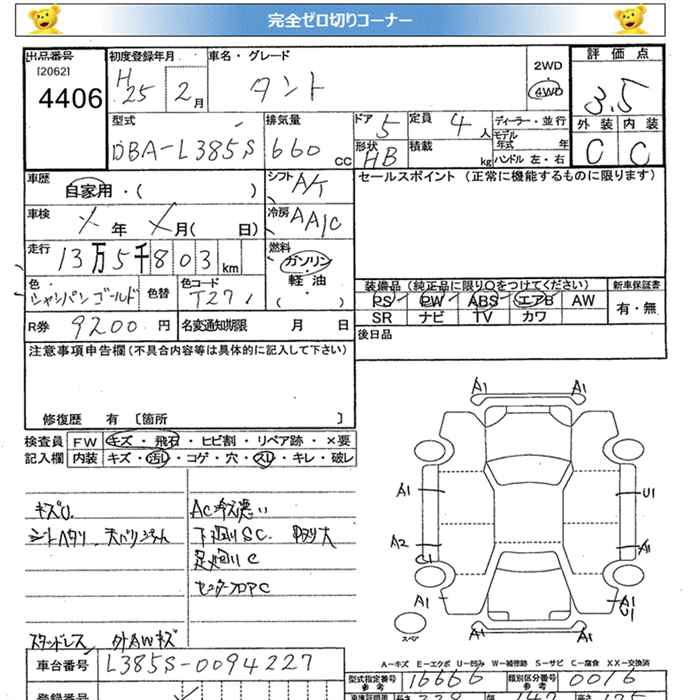 完全ゼロ切りコーナー
出品番号 [2062] 4406
初度登録年月 H25 2月
車名・グレード タント
2WD 4WD
評価点 3.5
外装 C 内装 C
型式 DBA-L385S
排気量 660 cc
ドア 5 定員 4人
形状 HB 積載 kg
ディーラー・並行
モデル年式 年
ハンドル 左・右
車歴 自家用・( )
シフト A/T
セールスポイント (正常に機能するものに限ります)
車検 年 月( 日)
冷房 AA/C
走行 13万5千803km
燃料 ガソリン・軽油・( )
色 シャンパンゴールド 色替
色コード T27
装備品 (純正品に限り○をつけてください) 新車保証書
PS PW ABS エアB AW 有・無
SR ナビ TV カワ
R券 9200円 名変通知期限 月 日
後日品
注意事項申告欄(不具合内容等は具体的に記入して下さい)
修復歴 有 〔箇所 〕
検査員 FW キズ・飛石・ヒビ割・リペア跡・×要
記入欄 内装 キズ・汚レ・コゲ・穴・スレ・キレ・破レ
キズU.
AC冷え悪い
シートヘタリ.
下回りSC.
足廻りC
センターフロアC
スタッドレス 外AWキズ
A1 A1
A1 U1
A2 A1
C1
A1 A1
U1
A1 A1
スペア
A-キズ E-エクボ U-凹み W-補修跡 S-サビ C-腐食 XX-交換済
車台番号 L385S-0094227
型式指定番号 参考 16666
類別区分番号 参考 0016
登録番号